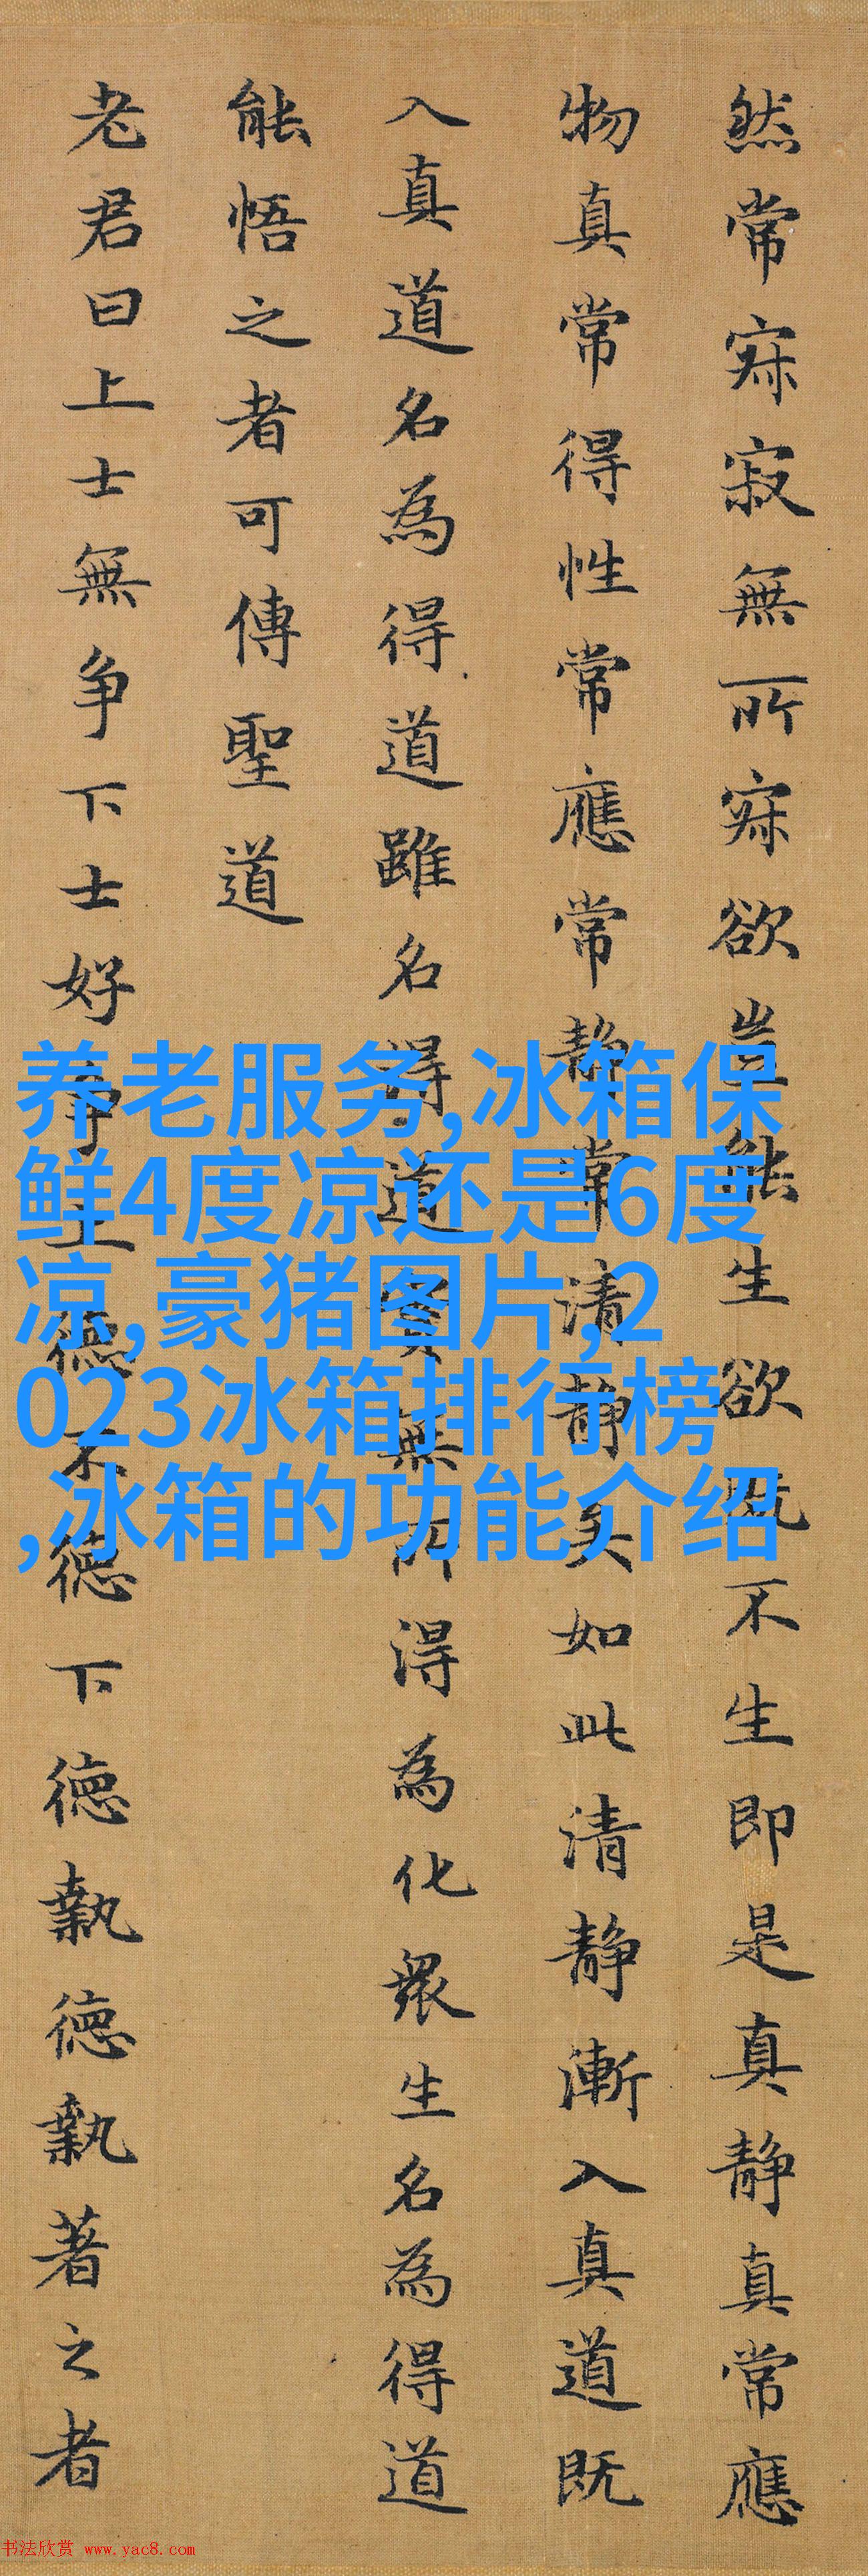 然常寂寂無所寂欲豈能生欲既不生即是真静真常應
物真常得性常應常静常清静矣如此清静漸入真道既
入真道名為得道雖名得道實無所得為化衆生名為得道
能悟之者可傳聖道
老君曰上士無争下士好争上德不德下德執德執著之者
养老服务,冰箱保
鲜4度凉还是6度
凉,豪猪图片,2
023冰箱排行榜
,冰箱的功能介绍
书法欣赏 www.yac8.com